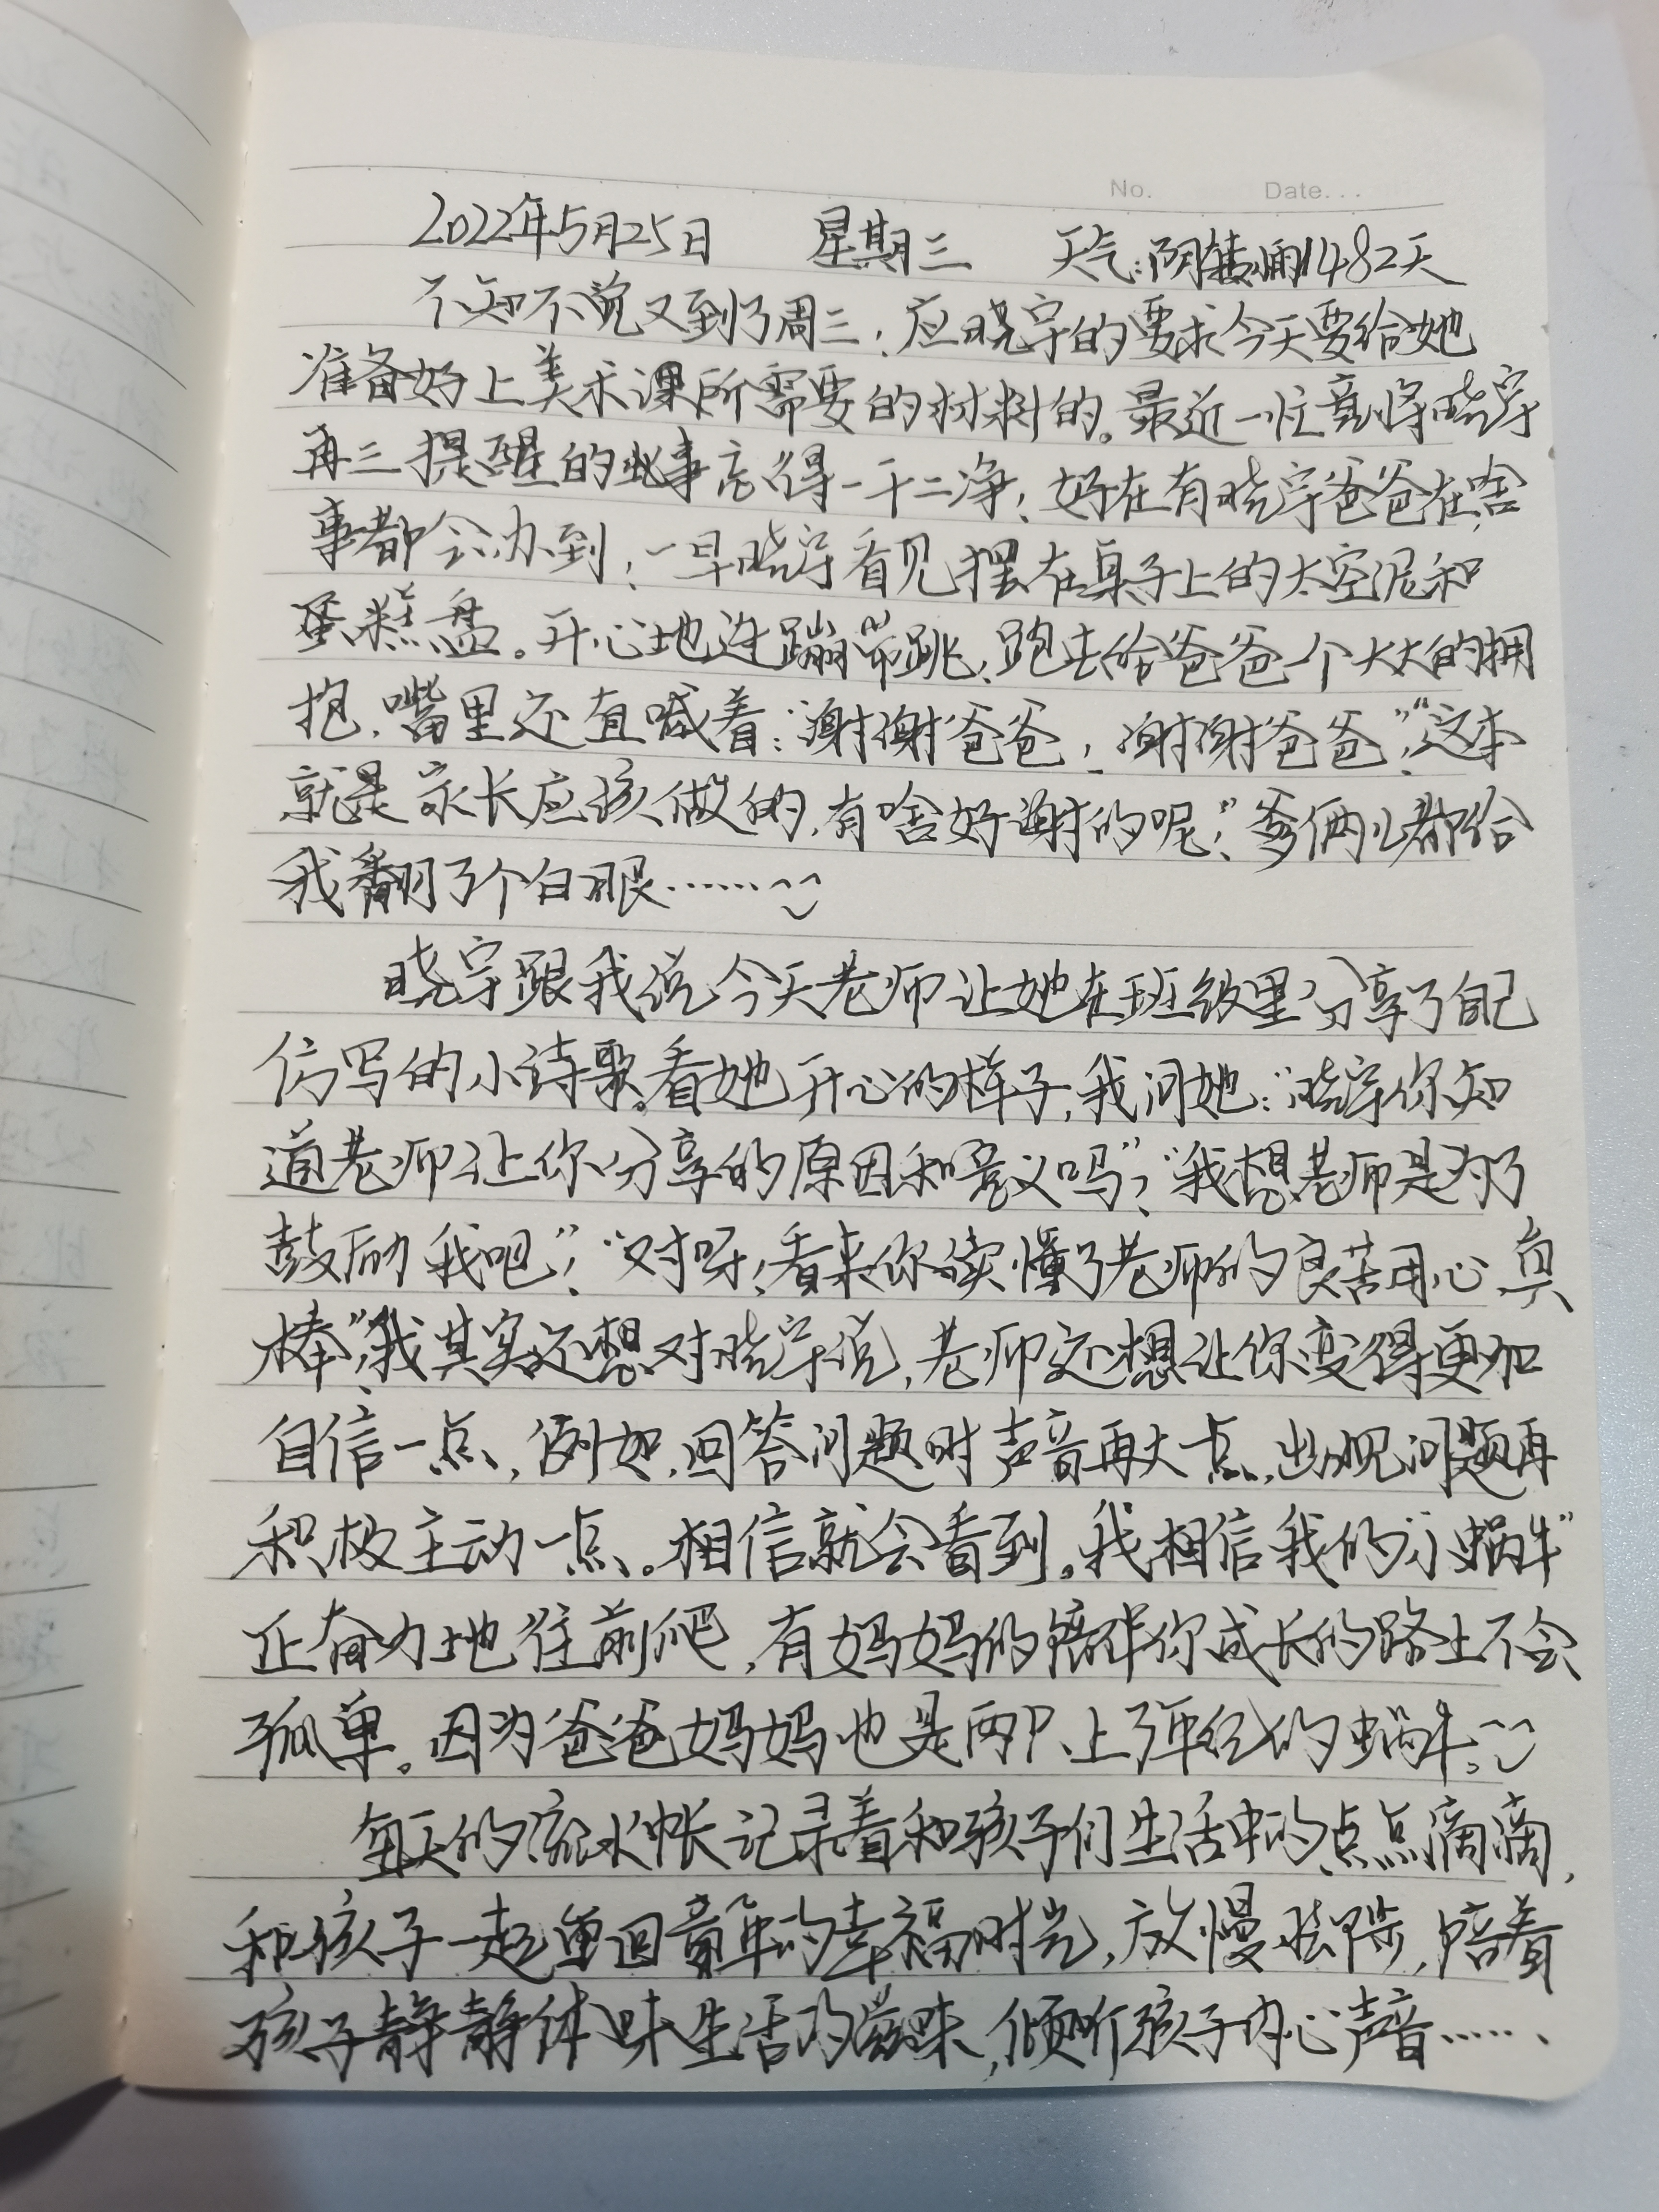 No. Date...
2022年5月25日 星期三 天气:阴转雨1482天
不知不觉又到了周三,应晓宇的要求今天要给她
准备好上美术课所需要的材料的。最近一忙竟将晓宇
再三提醒的此事忘得一干二净,好在有晓宇爸爸在,啥
事都会办到,一早晓宇看见摆在桌子上的太空泥和
蛋糕盘。开心地连蹦带跳,跑去给爸爸一个大大的拥
抱,嘴里还直喊着:“谢谢爸爸,谢谢爸爸”,“这本
就是家长应该做的,有啥好谢的呢?”爹俩儿都给
我翻了个白眼……
晓宇跟我说今天老师让她在班级里分享了自己
仿写的小诗歌。看她开心的样子,我问她:“晓宇你知
道老师让你分享的原因和意义吗”?“我想老师是为了
鼓励我吧”!“对呀,看来你读懂了老师的良苦用心,真
棒”,我其实还想对晓宇说,老师还想让你变得更加
自信一点,例如,回答问题时声音再大一点,出现问题再
积极主动一点。相信就会看到,我相信我的“小蜗牛”
正奋力地往前爬,有妈妈的陪伴你成长的路上不会
孤单。因为爸爸妈妈也是两只上了年纪的蜗牛。
每天的流水帐记录着和孩子们生活中的点点滴滴,
和孩子一起重回童年的幸福时光,放慢脚步,陪着
孩子静静体味生活的滋味,倾听孩子内心声音……